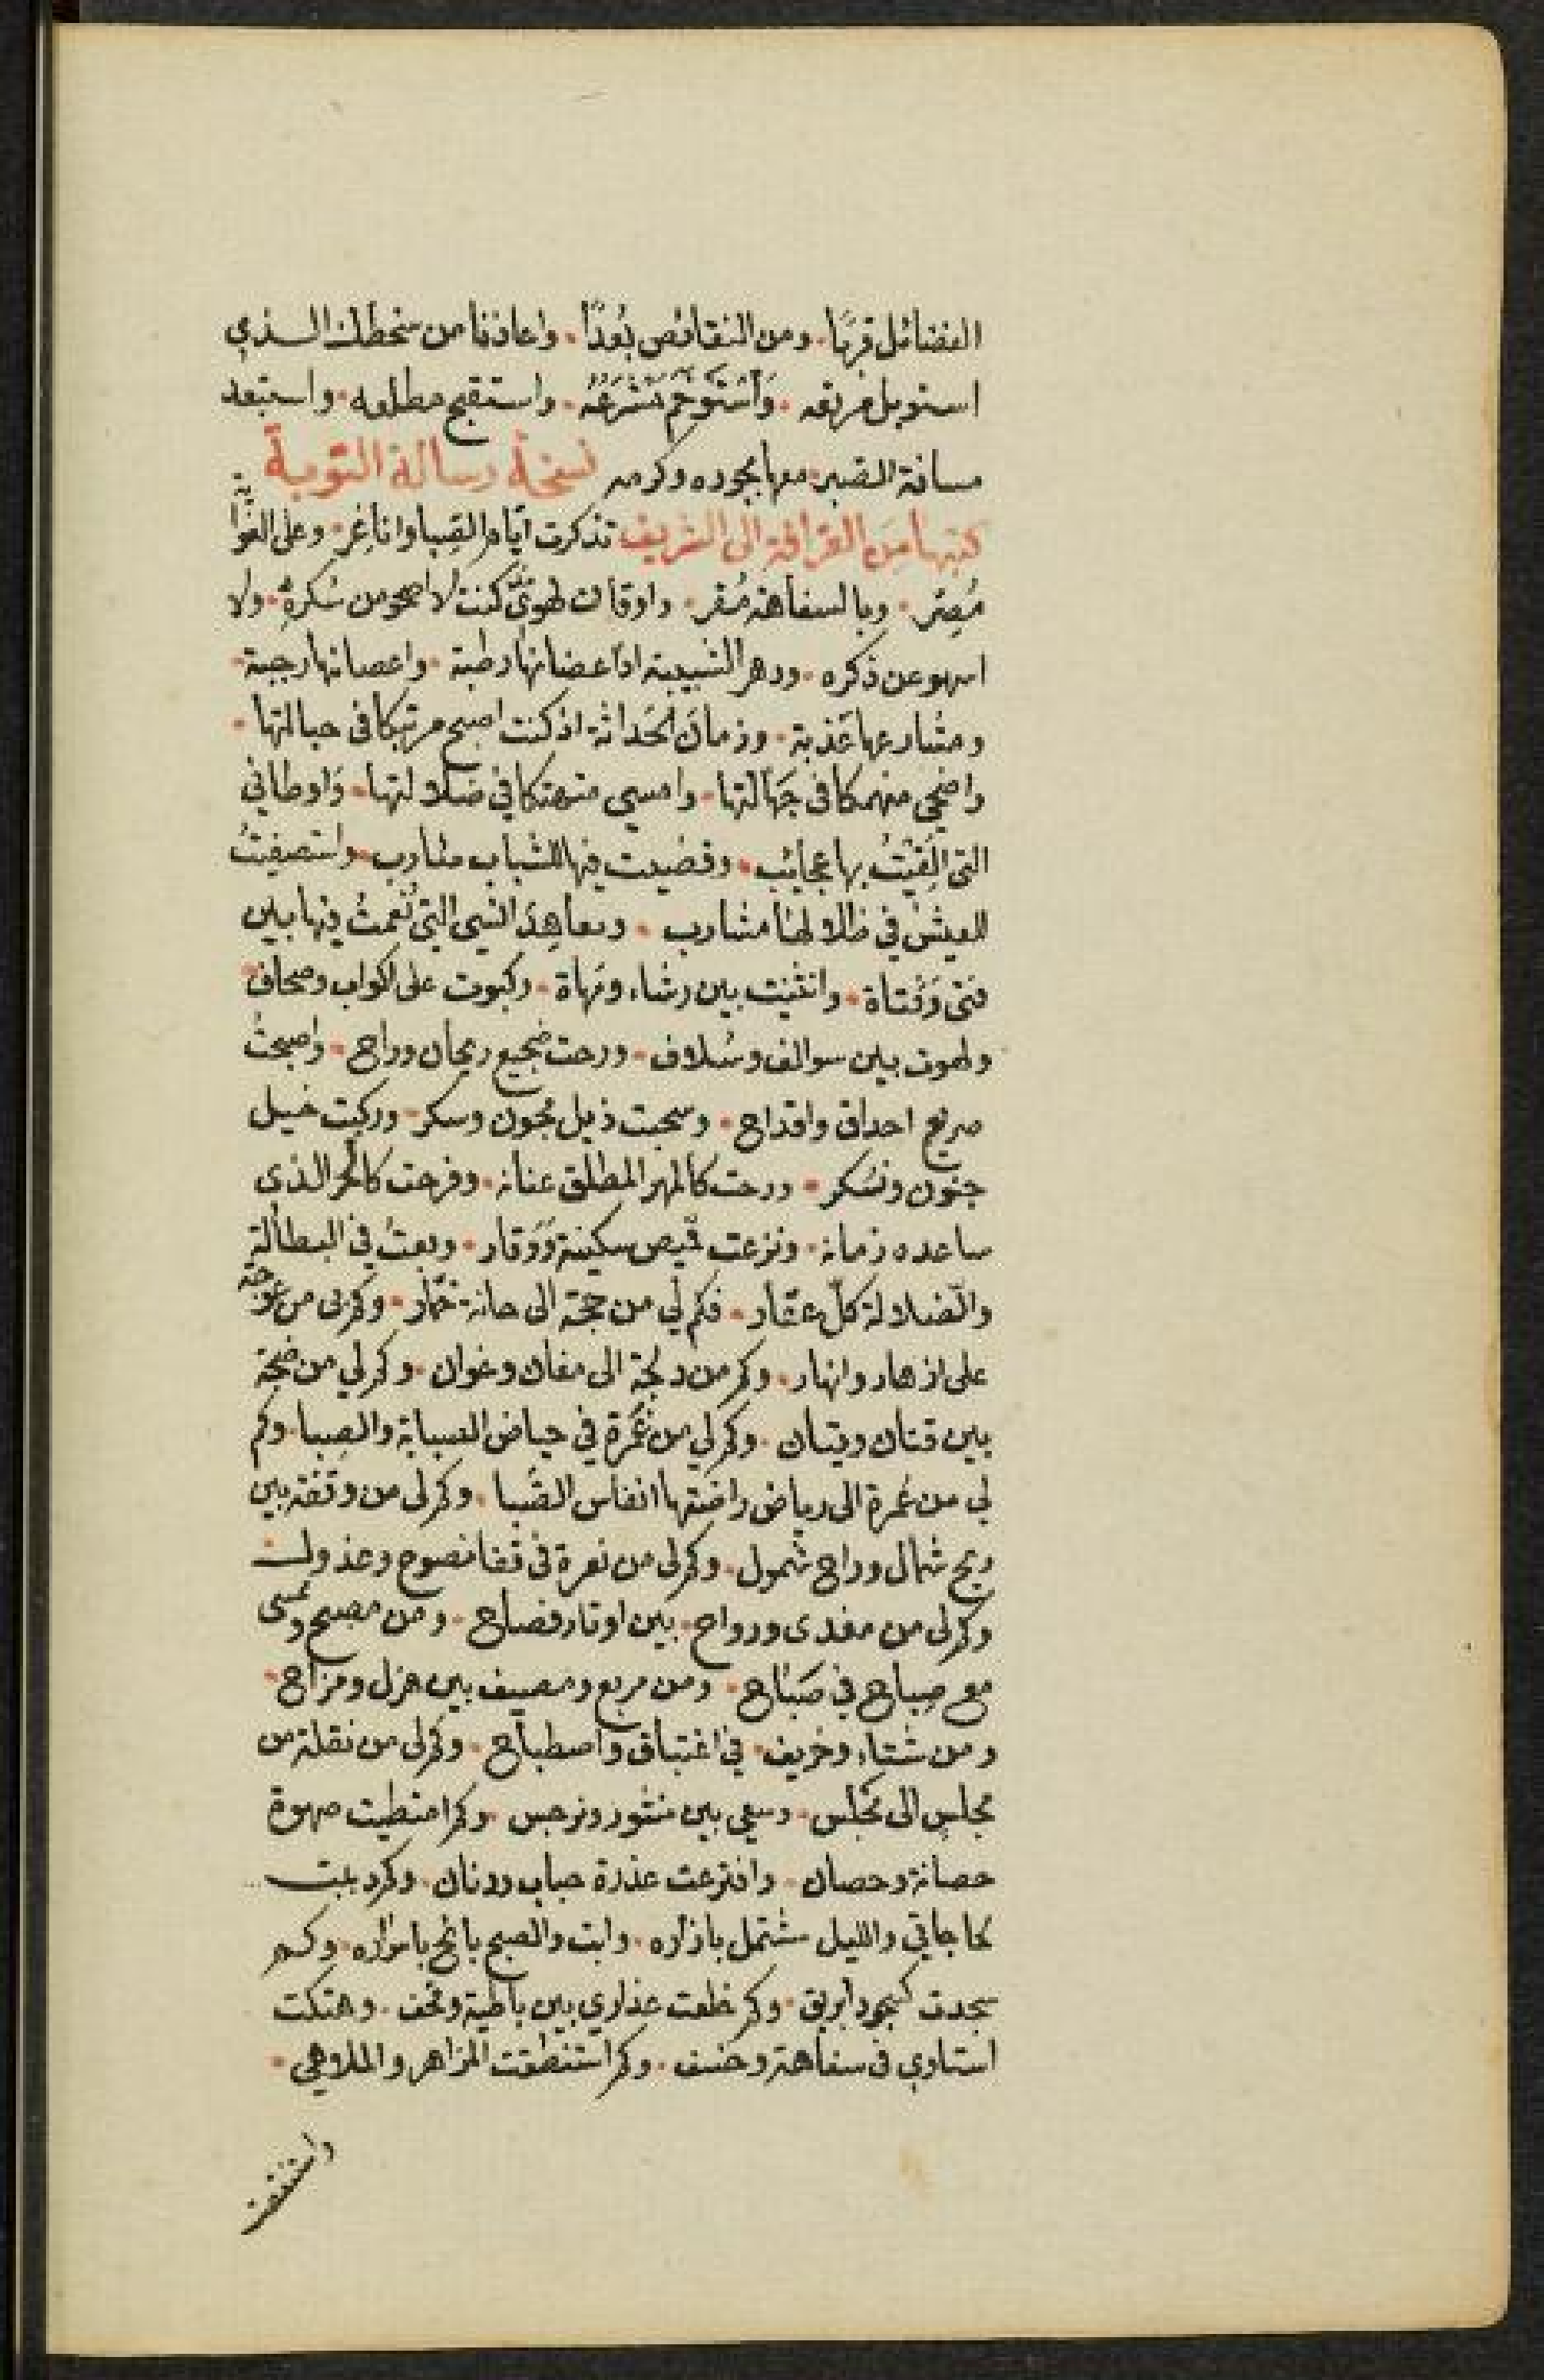 الفضائل قربًا. ومن النقائص بُعدًا. واعاذنا من سخطك الذي
استوبل فريقه. وَاَسْتَوْخَمَ مَشْرَعُهُ. واستقبح مطلعه. واستبعد
مسافة الصبر معها بجوده وكرمه نسخة رسالة التوبة
كتبها من القرافة الى الشريف تذكرت ايّام الصِبا وانا غِر. وعلى الغواية
مُصِر. وبالسفاهة مُقر. واوقات لهويَّ كنت لا اصحو من سُكرهِ. ولا
اسهو عن ذكره. ودهر الشبيبة اذ اعضانها رطبة. واعصانها رجبة.
ومشارعها عَذبة. وزمانَ الحَداثة اذ كنت اصبح مرتبكا في حبالتها.
واضحي منهمكا في جَهالتها. وامسي متهتكا في ضلالتها. وَاوطاني
التي اَلِفْتُ بها عجايب. وقضيت فيها للشباب مئارب. واستصفيتُ
للعيش في ظلالها مشارب. ومعاهِدَ التي التي نَعمتُ فيها بين
فتى وَفتاة. وانثنيت بين رشاء ومَهاة. وكبوت على اكواب وصحاف
ولهوت بين سوالف وسُلاف. ورحت ضجيع ريحان وراح. واصبحتُ
صريع احداق واقداح. وسحبت ذيل مُجون وسكر. وركبت خيل
جنون ونُكر. ورحت كالمهر المطلق عنانه. وفرحت كالحر الذي
ساعده زمانه. ونزعت قميص سكينة وَوَقار. وبعتُ في البطالة
والضلالة كلّ عقار. فكم لي من حجة الى حانة خمّار. وكم لي من عَوجة
على ازهار وانهار. وكم من دلجة الى مغان وغوان. وكم لي من ضجة
بين قنان وقيان. وكم لي من غَمرة في حياض الصبابة والصِبا. وكم
لي من عُمرة الى رياض راضتها انفاس الصَّبا. وكم لي من وقفة بين
ريح شمال وراح شمول. وكم لي من نعرة في قفا نصوح وعذول
وكم لي من مغدى ورواح. بين اوتار فصاح. ومن مصبح وممسى
مع صِباح في صَباح. ومن مربع ومصيف بين هزل ومزاح.
ومن شتاء وخريف. في اغتباق واصطباح. وكم لي من نقلة من
مجلس الى مجلس. وسعي بين منثور ونرجس. وكم امتطيت صهوة
حصانة وحصان. وافترعت عذرة حباب ودنان. وكم دببت
لحاجاتي والليل مشتمل بازاره. وابت والصبح بائح باسراره. وكم
سجدت كسجود ابريق. وكم خلعت عذاري بين باطية وقحف. وهتكت
استاري في سفاهة وخسف. وكم استنطقت المزاهر والملاهي.